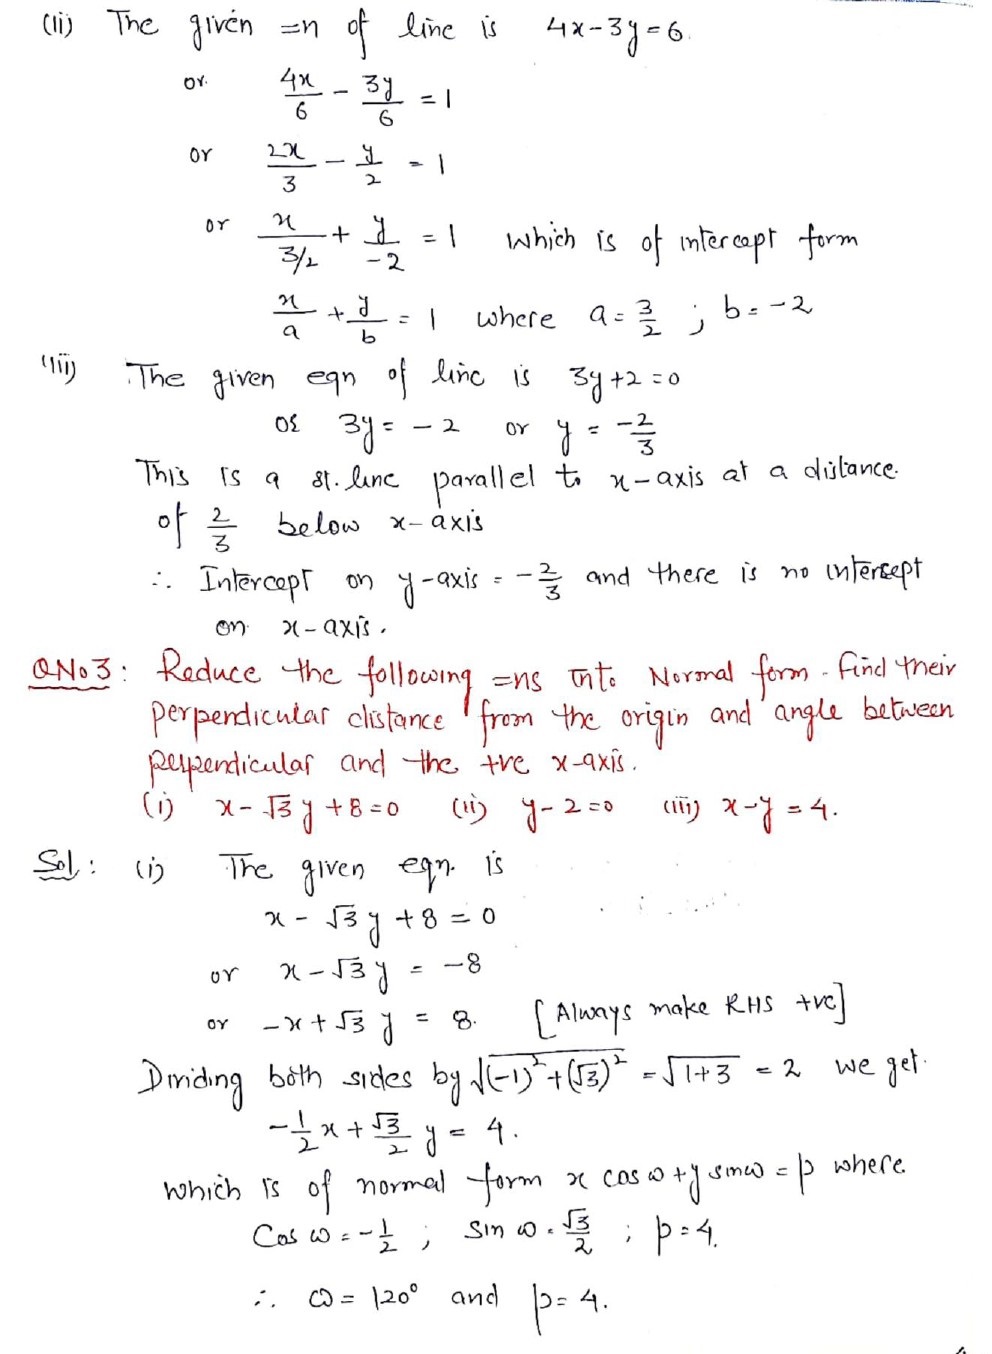 (ii) The given =n of line is 4x-3y=6.
or 4x/6 - 3y/6 = 1
or 2x/3 - y/2 = 1
or x/(3/2) + y/-2 = 1 which is of intercept form
x/a + y/b = 1 where a = 3/2 ; b = -2
(iii) The given eqn of line is 3y+2=0
or 3y = -2 or y = -2/3
This is a st. line parallel to x-axis at a distance.
of 2/3 below x-axis
∴ Intercept on y-axis = -2/3 and there is no intersept
on x-axis.
QNo3: Reduce the following =ns into Normal form. find their
perpendicular distance from the origin and angle between
perpendicular and the +ve x-axis.
(i) x-√3y+8=0 (ii) y-2=0 (iii) x-y=4.
Sol: (i) The given eqn. is
x - √3y + 8 = 0
or x - √3y = -8
or -x + √3y = 8. [Always make RHS +ve]
Dividing both sides by √((-1)²+(√3)²) = √(1+3) = 2 we get.
-1/2 x + √3/2 y = 4.
which is of normal form x cos ω + y sin ω = p where
Cos ω = -1/2 ; Sin ω = √3/2 ; p = 4.
∴ ω = 120° and p = 4.